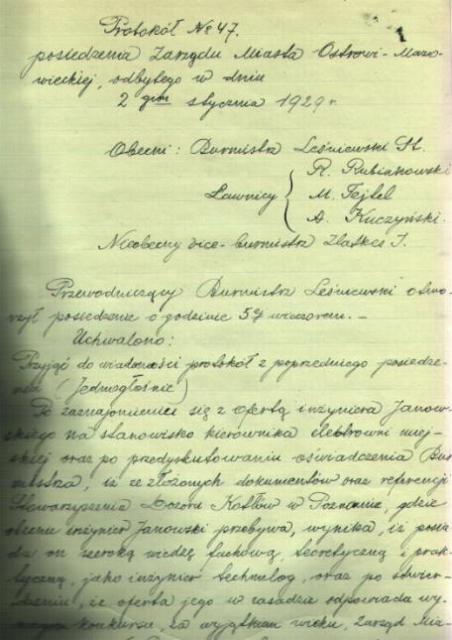 Protokół № 47.
posiedzenia Zarządu Miasta Ostrowi-Mazo-
wieckiej, odbytego w dniu
2 gim stycznia 1929 r.
Obecni: Burmistrz Leśniewski St.
R. Rubianowski
Ławnicy M. Tejtel
A. Kuczyński.
Nieobecny vice-burmistrz Zlatkes I.
Przewodniczący Burmistrz Leśniewski otwo-
rzył posiedzenie o godzinie 5ej wieczorem. —
Uchwalono:
Przyjąć do wiadomości protokół z poprzedniego posiedze-
nia (Jednogłośnie)
Po zaznajomieniu się z ofertą inżyniera Janow-
skiego na stanowisko kierownika elektrowni miej-
skiej oraz po przedyskutowaniu oświadczenia Bur
mistrza, iż ze złożonych dokumentów oraz referencji
Stowarzyszenia Dozoru Kotłów w Poznaniu, gdzie
obecnie inżynier Janowski przebywa, wynika, iż posia-
da on szeroką wiedzę fachową, teoretyczną i prak-
tyczną, jako inżynier technolog, oraz po stwier-
dzeniu, że oferta jego w zasadzie odpowiada wy-
konkursu, za wyjątkiem wieku, Zarząd Mia-